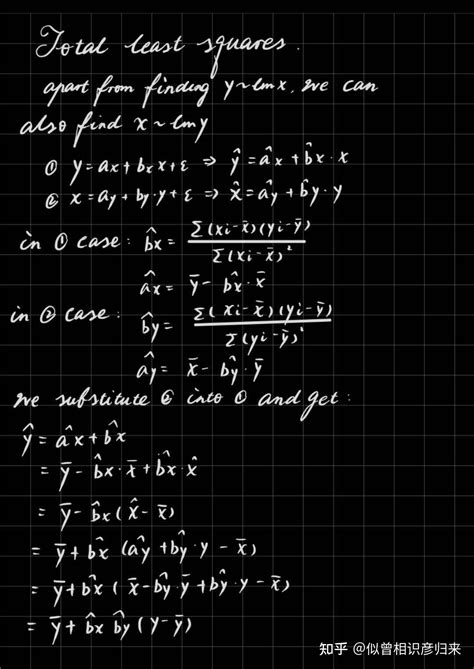 Total least squares.
apart from finding y~lmx, we can
also find x~lmy
① y=ax+bx x+ε ⇒ ŷ=âx+b̂x·x
② x=ay+by·y+ε ⇒ x̂=ây+b̂y·y
in ① case: b̂x= Σ(xi-x̄)(yi-ȳ) / Σ(xi-x̄)²
âx= ȳ- b̂x·x̄
in ② case: b̂y= Σ(xi-x̄)(yi-ȳ) / Σ(yi-ȳ)²
ây= x̄- b̂y·ȳ
we substitute ② into ① and get:
ŷ= âx+b̂x
= ȳ- b̂x·x̄+b̂x·x̂
= ȳ- b̂x(x̂-x̄)
= ȳ+b̂x (ây+b̂y·y - x̄)
= ȳ+b̂x ( x̄-b̂y·ȳ+b̂y·y - x̄)
= ȳ+ b̂x b̂y (y-ȳ)
知乎 @似曾相识彦归来